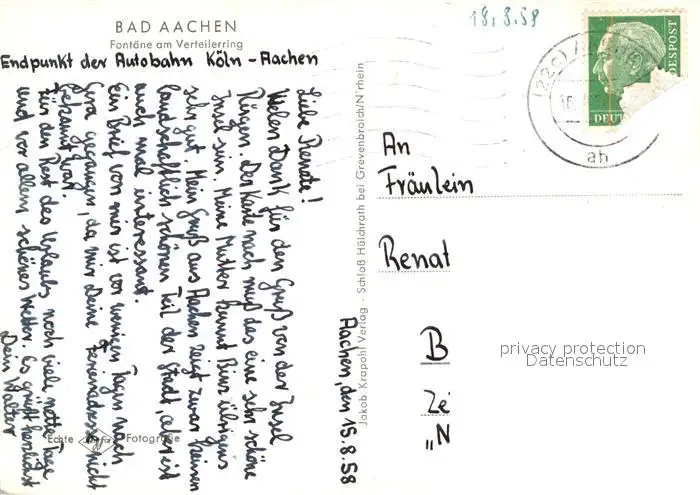 BAD AACHEN
Fontäne am Verteilerring
Endpunkt der Autobahn Köln - Aachen
18.8.58
Aachen, den 15.8.58
Liebe Renate!
Vielen Dank für den Gruß von der Insel
Rügen. Der Karte nach muß das eine sehr schöne
Insel sein. Meine Mutter kennt Binz übrigens
sehr gut. Mein Gruß aus Aachen zeigt zwar keinen
landschaftlich schönen Teil der Stadt, aber ist
auch mal interessant.
Ein Brief von mir ist vor wenigen Tagen nach
Gera gegangen, da mir Deine Ferienadresse nicht
bekannt war.
Für den Rest des Urlaubs noch viele nette Tage
und vor allem schönes Wetter. Es grüßt herzlichst
Dein Walter
Echte Agfa Fotografie
Jakob Krapohl Verlag · Schloß Hüldhrath bei Grevenbroich/N'rhein
DEUT
DESPOST
(22c)
ah
An
Fräulein
Renat
B
Ze
„N
privacy protection
Datenschutz